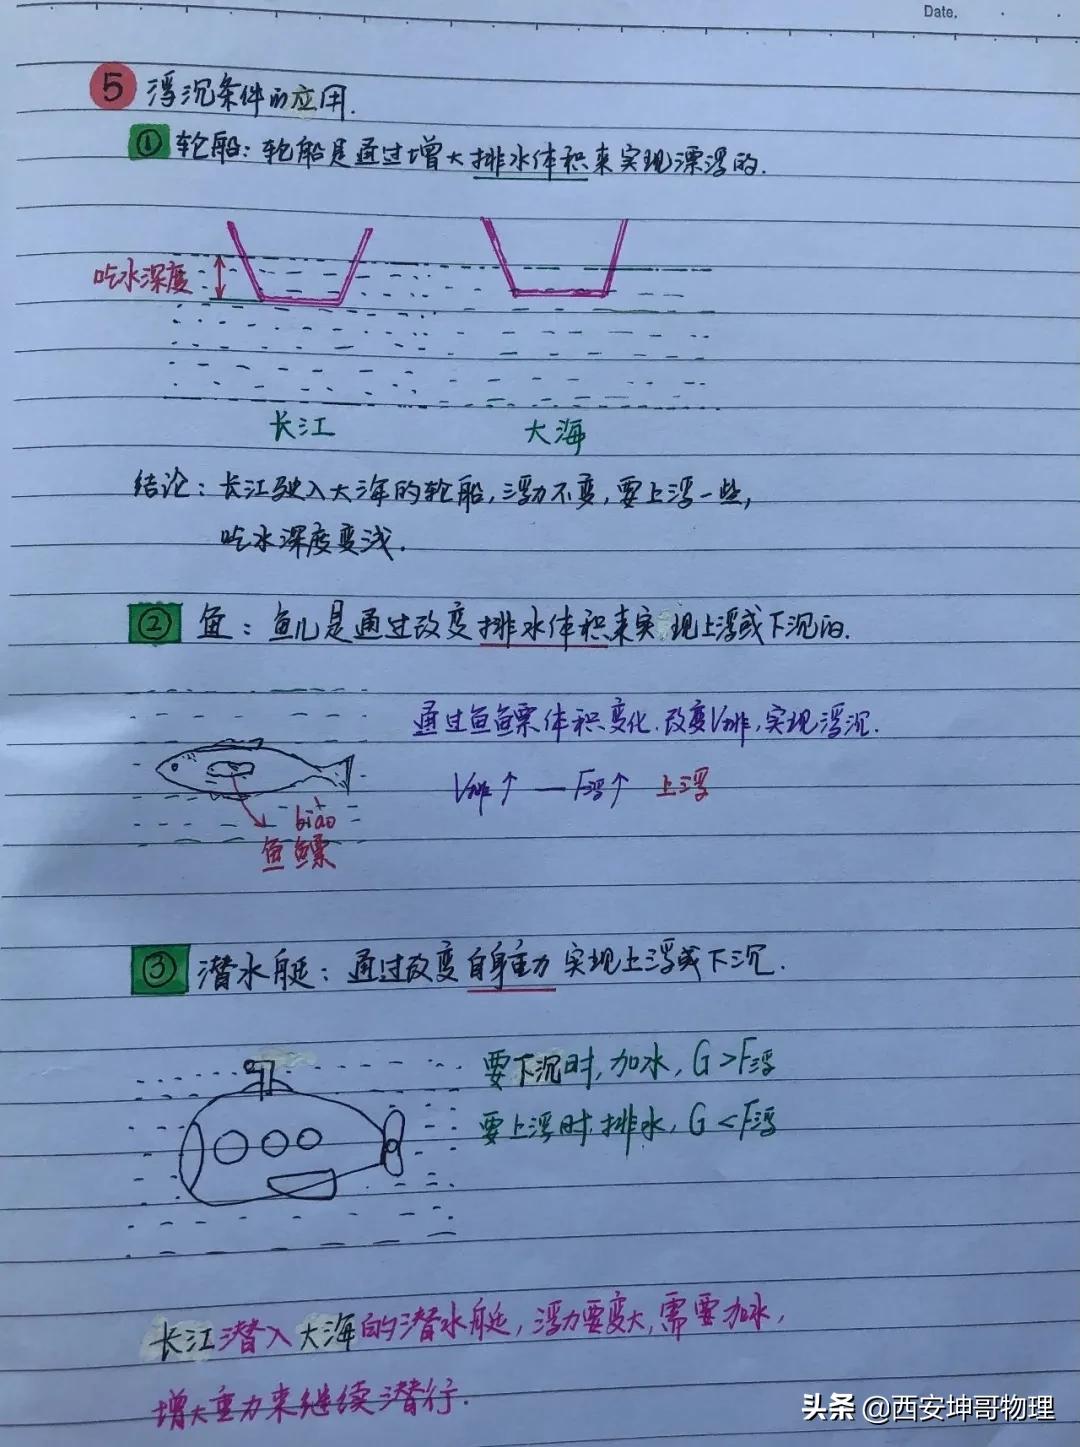 Date.
5 浮沉条件的应用.
① 轮船: 轮船是通过增大排水体积来实现漂浮的.
吃水深度
长江 大海
结论: 长江驶入大海的轮船,浮力不变,要上浮一些,
吃水深度变浅.
② 鱼: 鱼儿是通过改变排水体积来实现上浮或下沉的.
通过鱼鳔体积变化.改变V排,实现浮沉.
V排↑ — F浮↑ 上浮
biào
鱼鳔
③ 潜水艇: 通过改变自身重力 实现上浮或下沉.
要下沉时,加水, G>F浮
要上浮时,排水, G<F浮
长江潜入大海的潜水艇,浮力要变大,需要加水,
增大重力来继续潜行.
头条 @西安坤哥物理